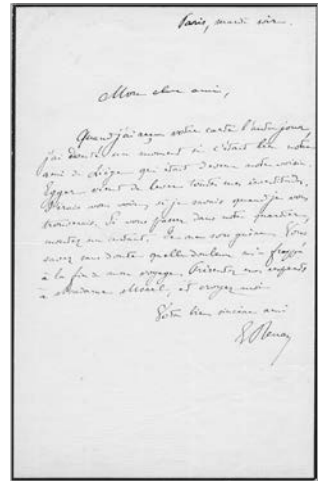 Paris, mardi soir.
Mon cher ami,
Quand j'ai reçu votre carte l'autre jour,
j'ai douté un moment si c'était bien notre
ami de Liège qui était devenu notre voisin.
Egger vient de lever toutes mes incertitudes.
J'irais vous voir, si je savais quand je vous
trouverais. Si vous passez dans notre quartier,
montez un instant, je vous prie. Vous
savez sans doute quelle douleur m'a frappé
à la fin de mon voyage. Présentez mes respects
à Madame et croyez moi
Votre bien sincère ami
E Renan